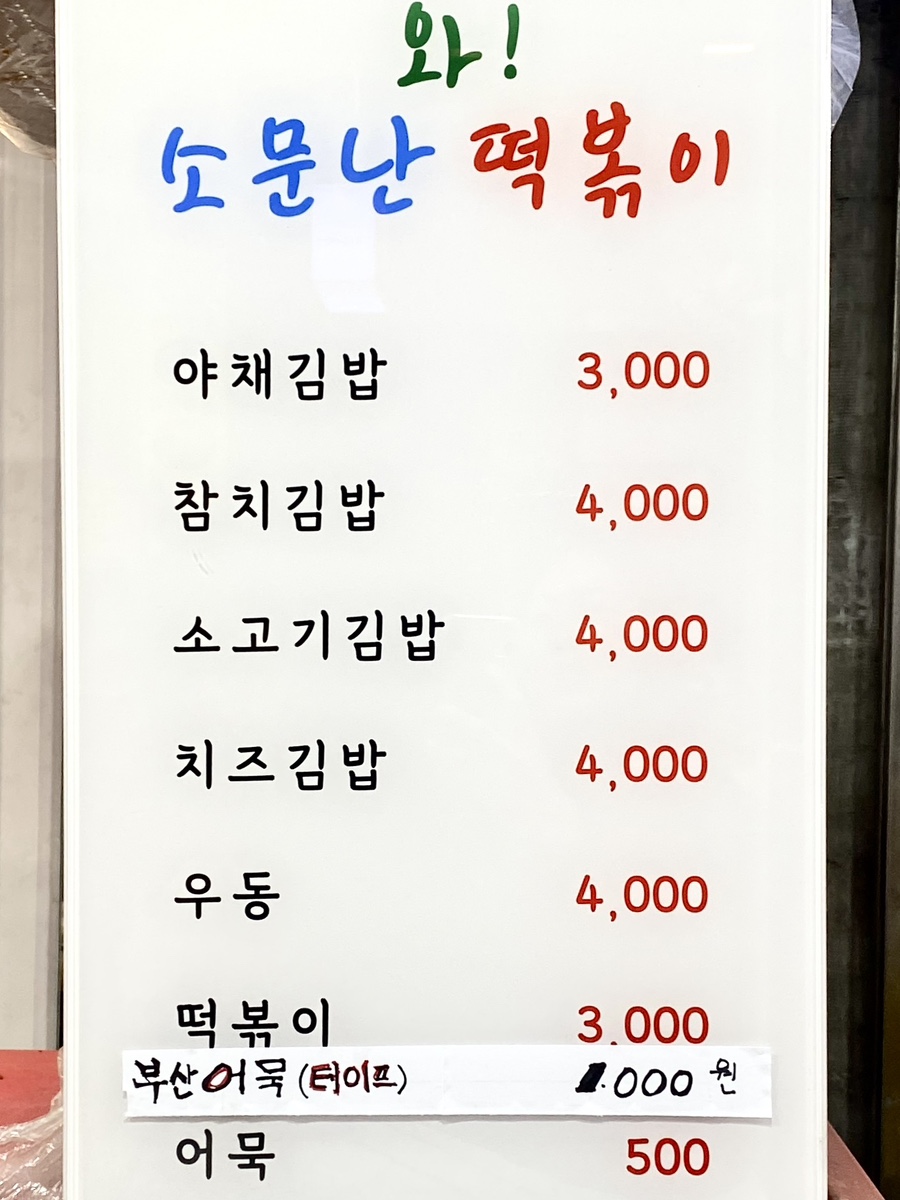 와!
소문난 떡볶이
야채김밥 3,000
참치김밥 4,000
소고기김밥 4,000
치즈김밥 4,000
우동 4,000
떡볶이 3,000
부산어묵 (테이프) 1.000 원
어묵 500